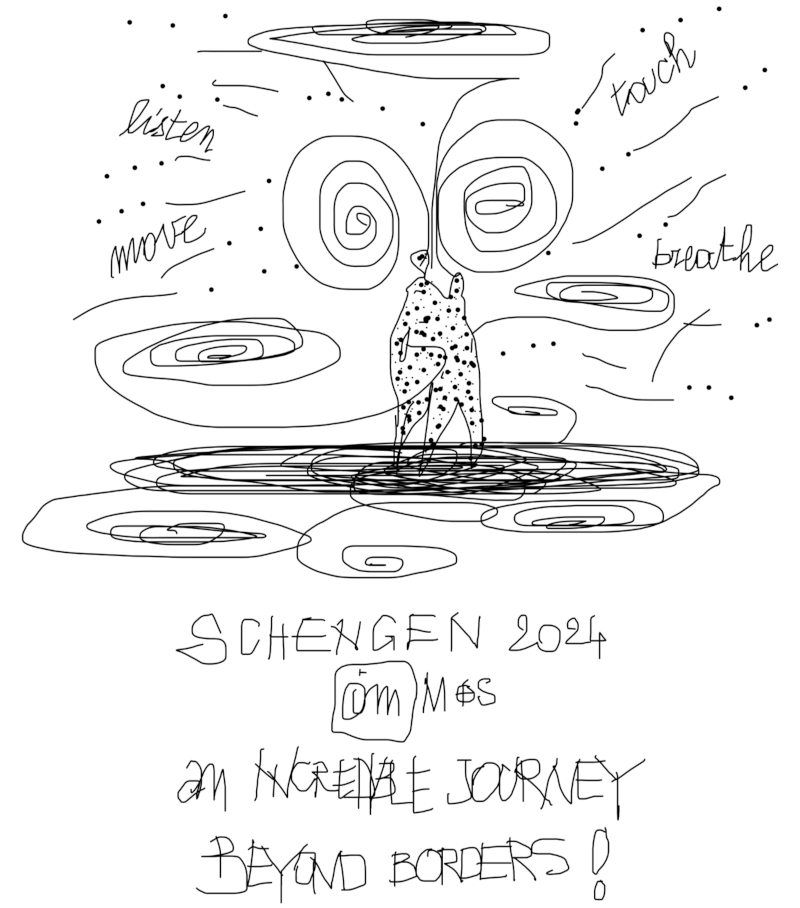 touch
listen
move
breathe
SCHENGEN 2024
öm MOS
an INCREDIBLE JOURNEY
BEYOND BORDERS!